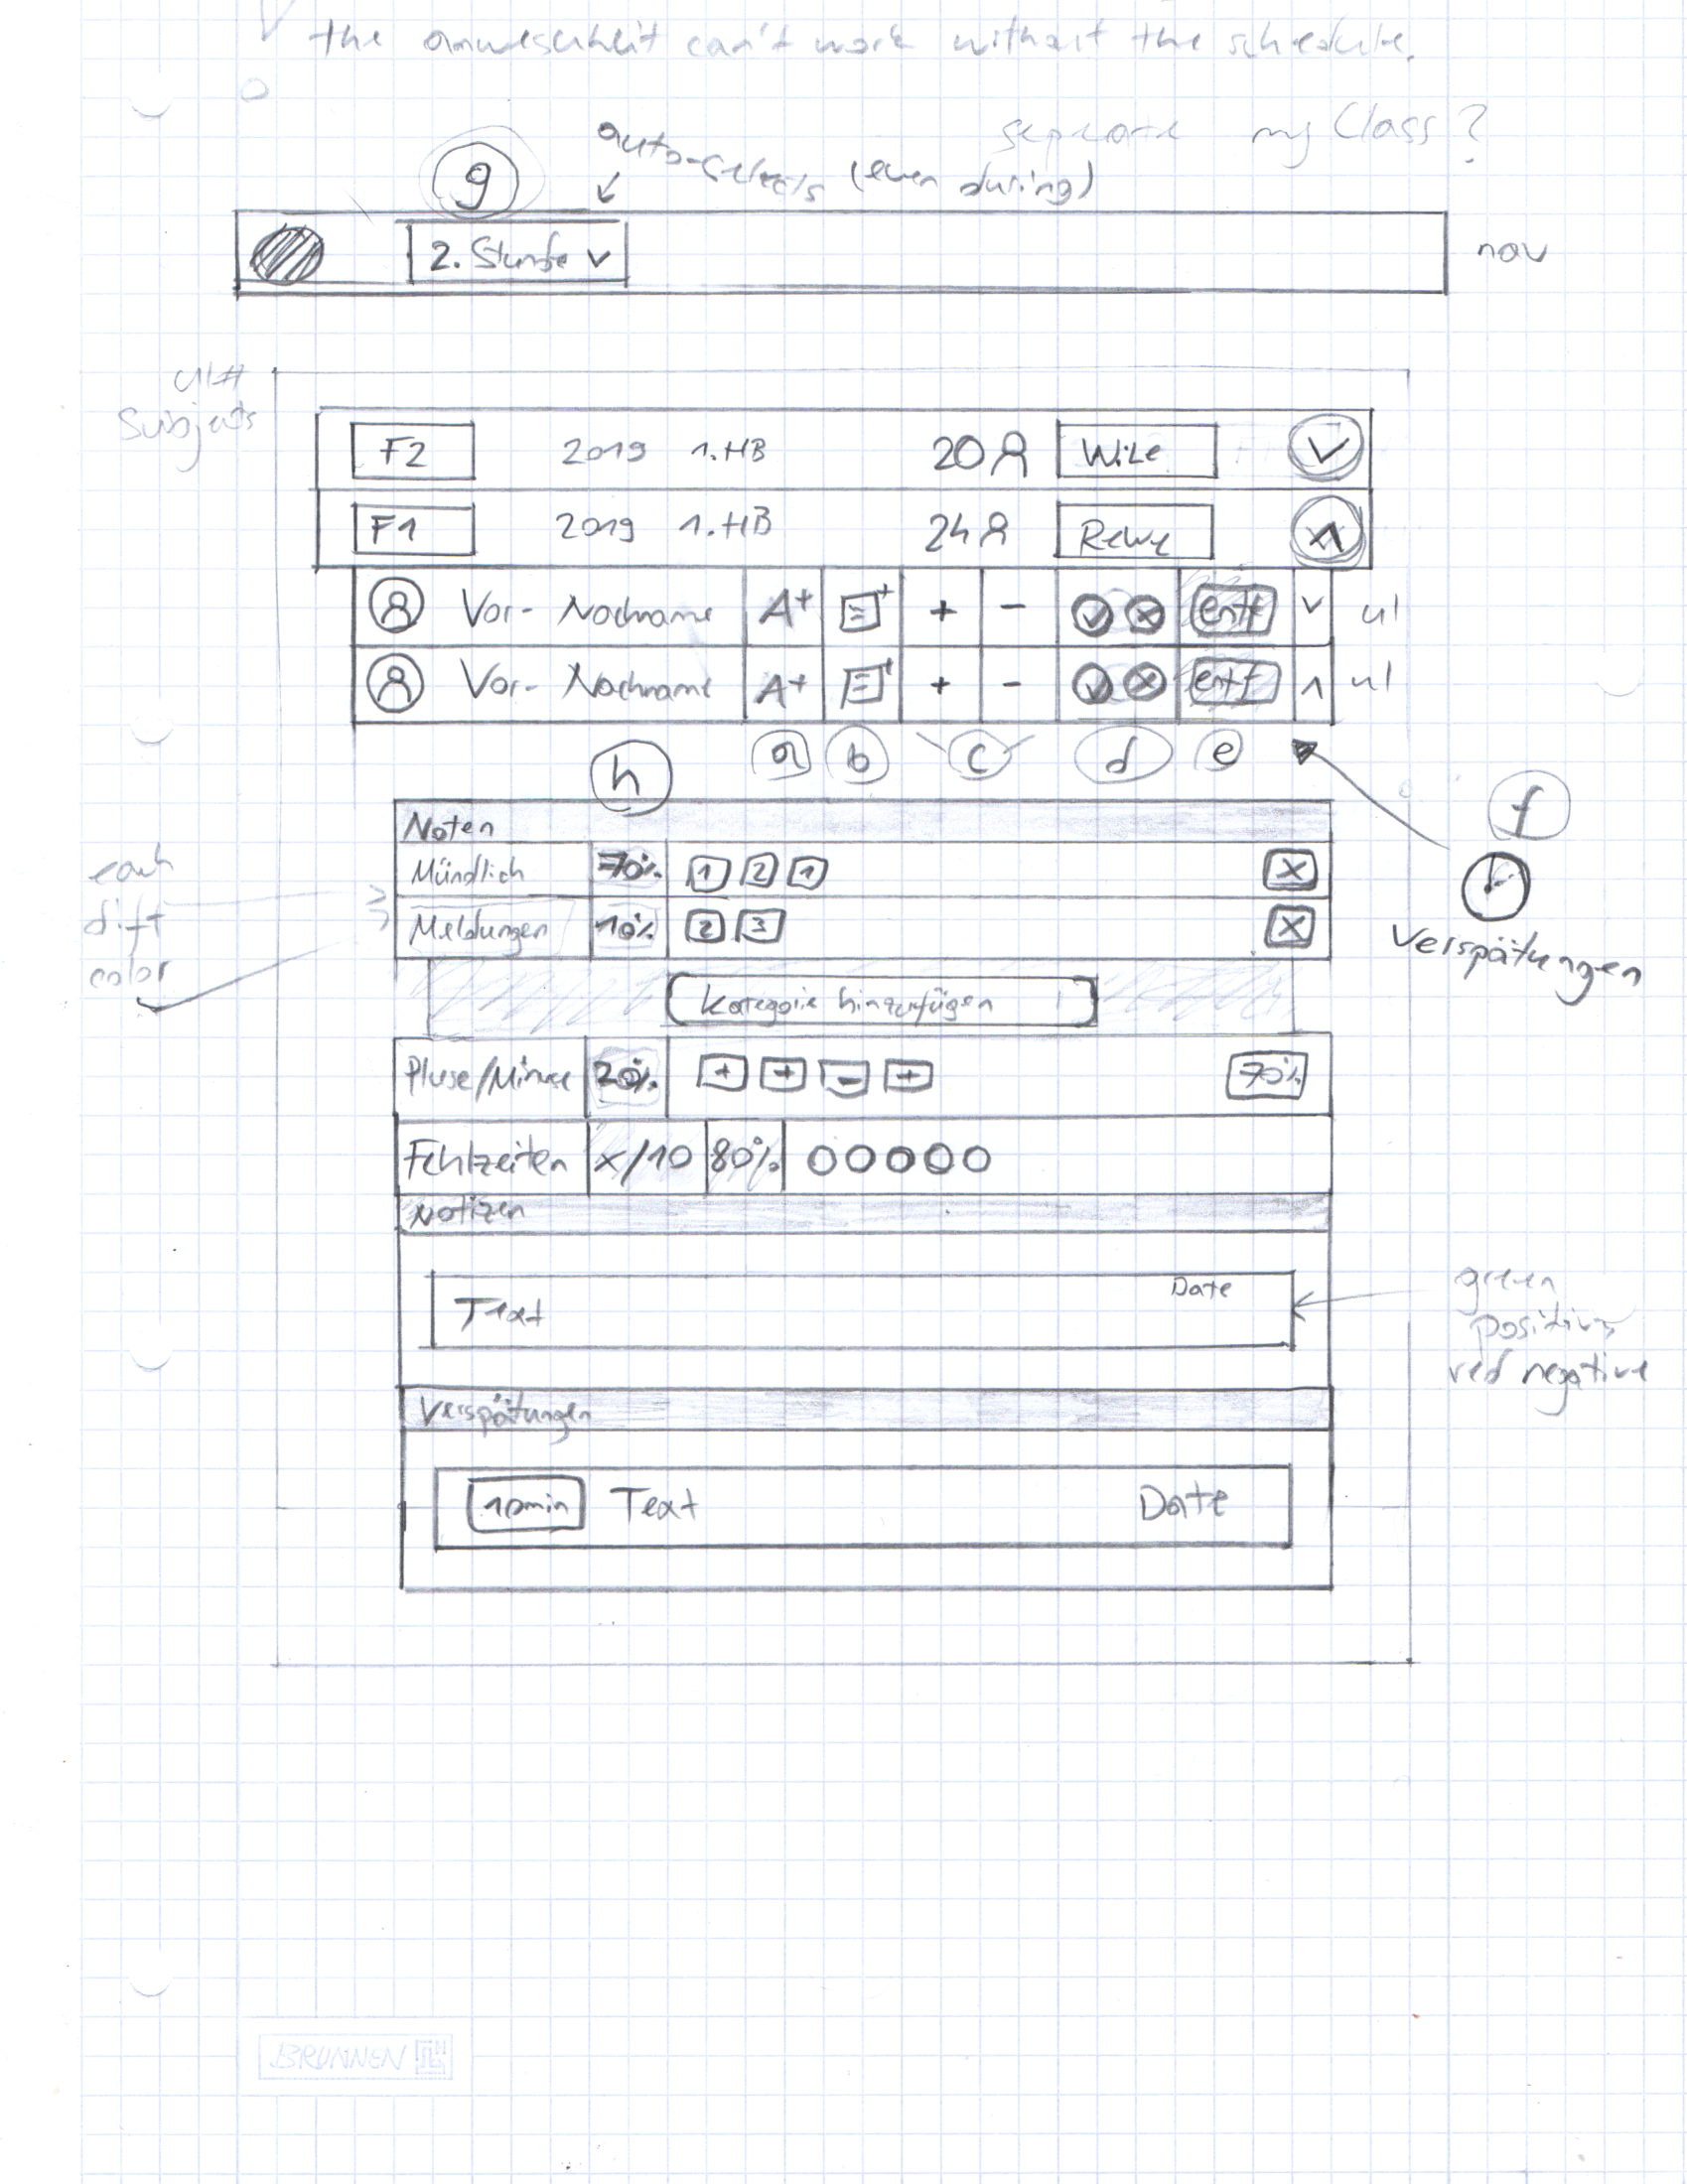 the anwesenheit can't work without the schedule.
seperate my Class?
auto-selects (even during)
g
2. Stunde v
nav
ul#
Subjects
F2 2019 1.HB 20 WiLe
F1 2019 1.HB 24 Rewe
Vor- Nachname A+ + - entf ul
Vor- Nachname A+ + - entf ul
h a b c d e
f
Verspätungen
Noten
Mündlich 70% 1 2 1 X
Meldungen 10% 2 3 X
each
diff
color
Kategorie hinzufügen
Pluse/Minuse 20% + + - + 70%
Fehlzeiten x/10 80%
Notizen
Text Date
green
positive
red negative
Verspätungen
10min Text Date
BRUNNEN